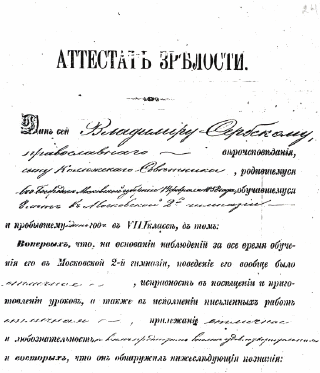 АТТЕСТАТЪ ЗРѢЛОСТИ.
Данъ сей Владиміру Сербскому,
православнаго вѣроисповѣданія,
сыну Коллежскаго Совѣтника, родившемуся
обучавшемуся
въ Московской 2й гимназіи
и пробывшему одинъ годъ въ VII классѣ, въ томъ:
Вопервыхъ, что, на основаніи наблюденій за все время обуче-
нія его въ Московской 2-й гимназіи, поведеніе его вообще было
отличное, исправность въ посѣщеніи и приго-
товленіи уроковъ, а также въ исполненіи письменныхъ работъ
отличная, прилежаніе отличное
и любознательность
и вовторыхъ, что онъ обнаружилъ нижеслѣдующія познанія: